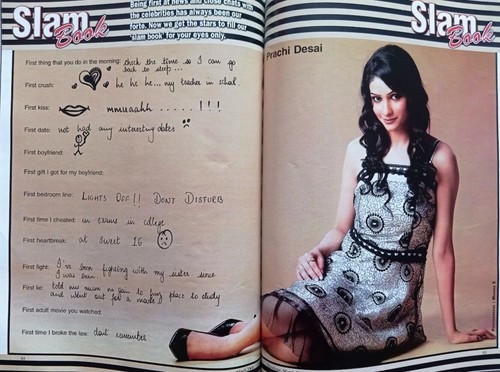 Slam
Book
Being first at news and close chats with
the celebrities has always been our
forte. Now we get the stars to fill our
'slam book' for your eyes only.
First thing that you do in the morning: check the time so I can go
back to sleep...
First crush: he he he... my teacher in school.
First kiss: mmuaahh ..... !!!
First date: not had any interesting dates
First boyfriend:
First gift I got for my boyfriend:
First bedroom line: LIGHTS OFF!! DONT DISTURB
First time I cheated: in exams in college
First heartbreak: at sweet 16
First fight: I've been fighting with my sister since
I was born
First lie: told my mum m goin to frens place to study
and went out for a movie!
First adult movie you watched:
First time I broke the law: dont remember
Slam
Book
Prachi Desai